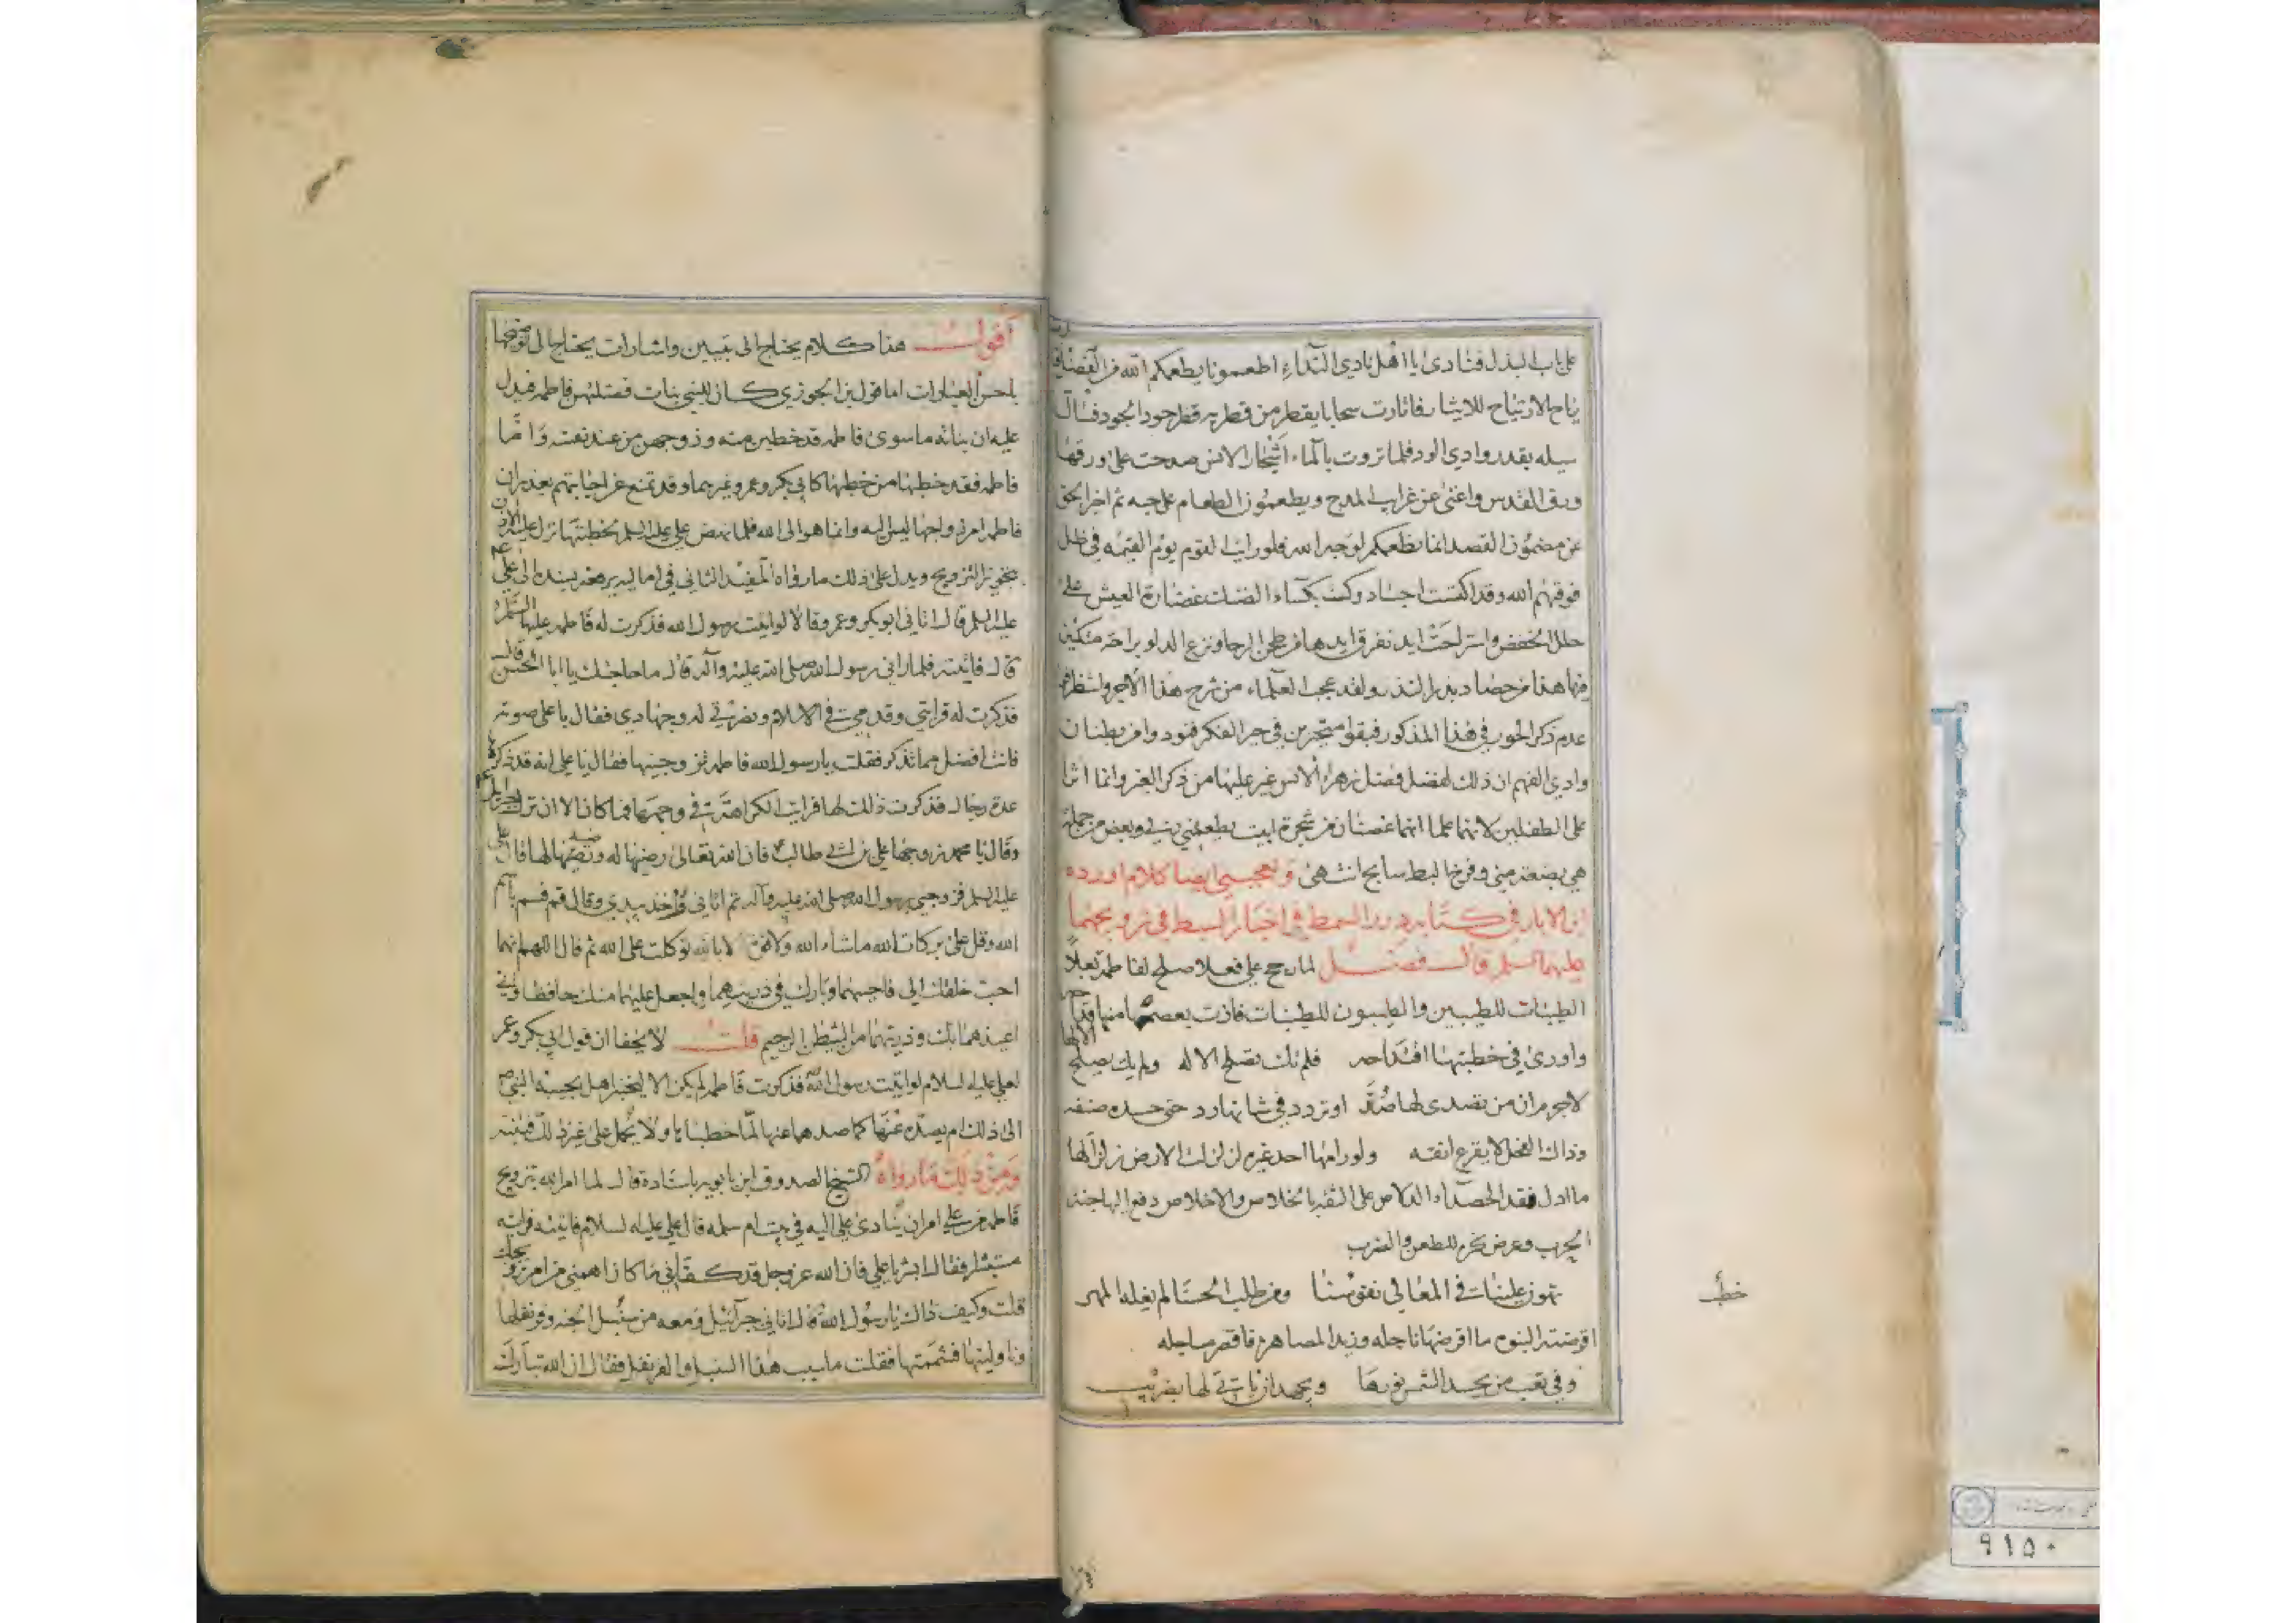 على باب البذل فنادى يا اهل نادي النداء اطعمونا يطعمكم الله
رياح الارتياح للايثار فاثارت سحابا يقطر من قطر به قطر جود الجود فسال
سيله بقدر وادي الود فلما تروت بالماء اشجار الانس صدحت على ورقها
ورق القدس واغنى عن غرايب المدح ويطعمون الطعام على حبه ثم اخبر الحق
عن مضمون القصد انما نطعمكم لوجه الله فلو رايت القوم يوم القيمه في ظل
فوقهم الله وقد اكتست اجساد وكست بكساء الضنك غضارة العيش على
حلل الخفض واستراحت ايد نفر ق ايدها من طحن الرحا ونزع الدلو براحة متكين
فيها هذا من حصاد بذر النذر ولقد عجب العلماء من شرح هذا الاجر
عدم ذكر الحور في هذا المذكور فبقوا متحيرين في حر الفكر فنودوا من بطنان
وادي الفهم ان ذلك لفضل فضل زهراء الانس غير عليها من ذكر الغير وانما اثرا
على الطفلين لانهما علما انهما غصنان من شجرة ابيت يطعمني ربي وبعض من جملة
هي بضعة مني وفرخ البط سابح انتهى ويعجبني ايضا كلام اورده
ابن الابار في كتابه درر السمط في اخبار السبط في تزويجهما
عليهما السلم قال فصل لما رجح علي فعلا صلح لفاطمة بعلا
الطيبات للطيبين والطيبون للطيبات فازت بعصمتها منها قداحه
واورى في خطبتها اقتداحه فلم تك تصلح الا له ولم يك يصلح الا لها
لاجرم ان من تصدى لها صد او تردد في شانها رد حتى حسده صنفه
وذاك الفحل لا يقرع انفه ولو رامها احد غيره لزلزلت الارض زلزالها
ما ادل فقد الحصداء الدلاص على الثقة بالخلاص والاخلاص دفع اليها جنة
الحرب وعرض نحره للطعن والضرب
تهون علينا في المعالي نفوسنا ومن طلب الحسنا لم يغله المهر
اقرضته اليوم ما اقرضها ناجله وزيد المصاهرة فاقصر مساجله
وفي تعب من يحسد الشمس نورها ويجهد ان ياتي لها بضريب
خطأ
اقول هذا كلام يحتاج الى تبيين واشارات يحتاج الى توضيحها
باحسن العبارات اما قول ابن الجوزي كان للنبي بنات فضلتهن فاطمه فيدل
عليه ان بناته ما سوى فاطمه قد خطبن منه وزوجهن من عند نفسه واما
فاطمه فقد خطبها من خطبها كابي بكر وعمر وغيرهما وقد تمنع عن اجابتهم بعذر ان
فاطمه امر زواجها ليس اليه وانما هو الى الله فلما نهض علي عليه السلم لخطبتها نزل عليه الاذن
بنحو نز التزويج ويدل على ذلك ما رواه المفيد الثاني في اماليه يرفعه بسنده الى علي
عليه السلم قال اتاني ابو بكر وعمر وقالا لو اتيت رسول الله فذكرت له فاطمه عليها السلم
قال فاتيته فلما راني رسول الله صلى الله عليه وآله قال ما حاجتك يا ابا الحسن قال
فذكرت له قرابتي وقدمي في الاسلام ونصرتي له وجهادي فقال يا علي صدقت
فانت افضل مما تذكر فقلت يا رسول الله فاطمه تزوجنيها فقال يا علي انه قد ذكرها
عدة رجال فذكرت ذلك لها فرايت الكراهة في وجهها فما كان الا ان نزل جبرئيل
وقال يا محمد زوجها علي بن ابي طالب فان الله تعالى رضيها له ورضيه لها قال علي
عليه السلم فزوجني رسول الله صلى الله عليه وآله ثم اتاني واخذ بيدي وقال قم فسم باسم
الله وقل على بركات الله ما شاء الله ولا قوة الا بالله توكلت على الله ثم قال اللهم انهما
احب خلقك الي فاحبهما وبارك في ذريتهما واجعل عليهما منك حافظا واني
اعيذهما بك وذريتهما من الشيطان الرجيم قلت لا يخفا ان قول ابي بكر وعمر
لعلي عليه السلام لو اتيت رسول الله فذكرت فاطمه لم يكن الا ليختبرا هل يجيبه النبي ص
الى ذلك ام يصده عنها كما صدهما عنها لما خطباها ولا يحمل على غير ذلك فتنبه
ومن ذلك ما رواه الشيخ الصدوق ابن بابويه باسناده قال لما امر الله بتزويج
فاطمه من علي امر ان ينادى علي اليه في بيت ام سلمه قال علي عليه السلام فاتيته فرايته
مستبشرا فقال ابشر يا علي فان الله عز وجل قد كفاني ما كان اهمني من امر تزويجك
قلت وكيف ذاك يا رسول الله قال اتاني جبرائيل ومعه من سنبل الجنه وقرنفلها
وناولنيها فشممتها فقلت ما سبب هذا السنبل والقرنفل فقال ان الله تبارك
٩١٥٠